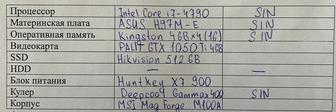 Процессор Intel Core i7-4790 SIN
Материнская плата ASUS H97M-E SIN
Оперативная память Kingston 4GBx4(16) SIN
Видеокарта PALIT GTX 1050Ti 4GB
SSD Hikvision 512 GB
HDD —
Блок питания HuntKey X7 900
Кулер Deepcool Gammax400 SIN
Корпус MSI Mag Forge M100A